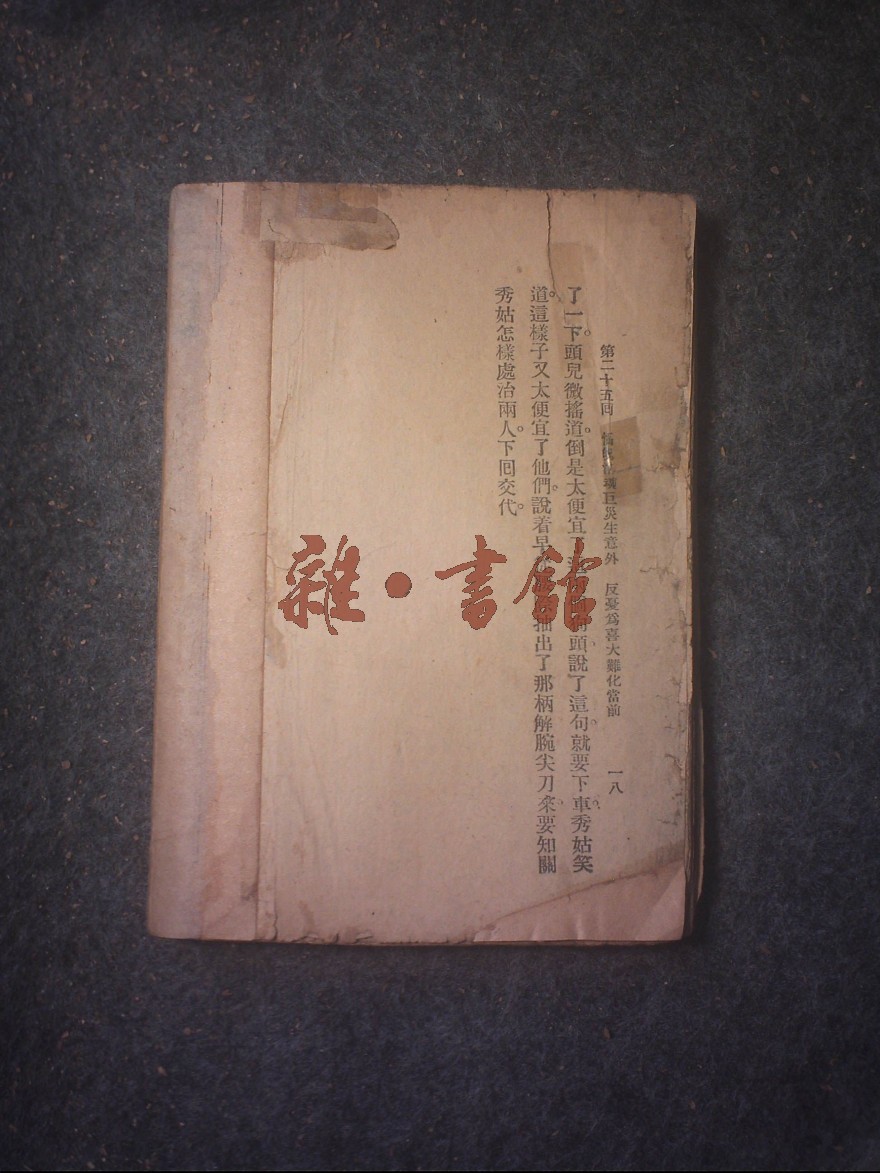 第二十五囘 巨災生意外 反憂爲喜大難化當前 一八
了一下。頭兒微搖道。倒是太便宜了 頭、說了這句。就要下車。秀姑笑
道。這樣子又太便宜了他們。說着早 抽出了那柄解腕尖刀來。要知關
秀姑怎樣處治兩人。下囘交代。
雜·書館